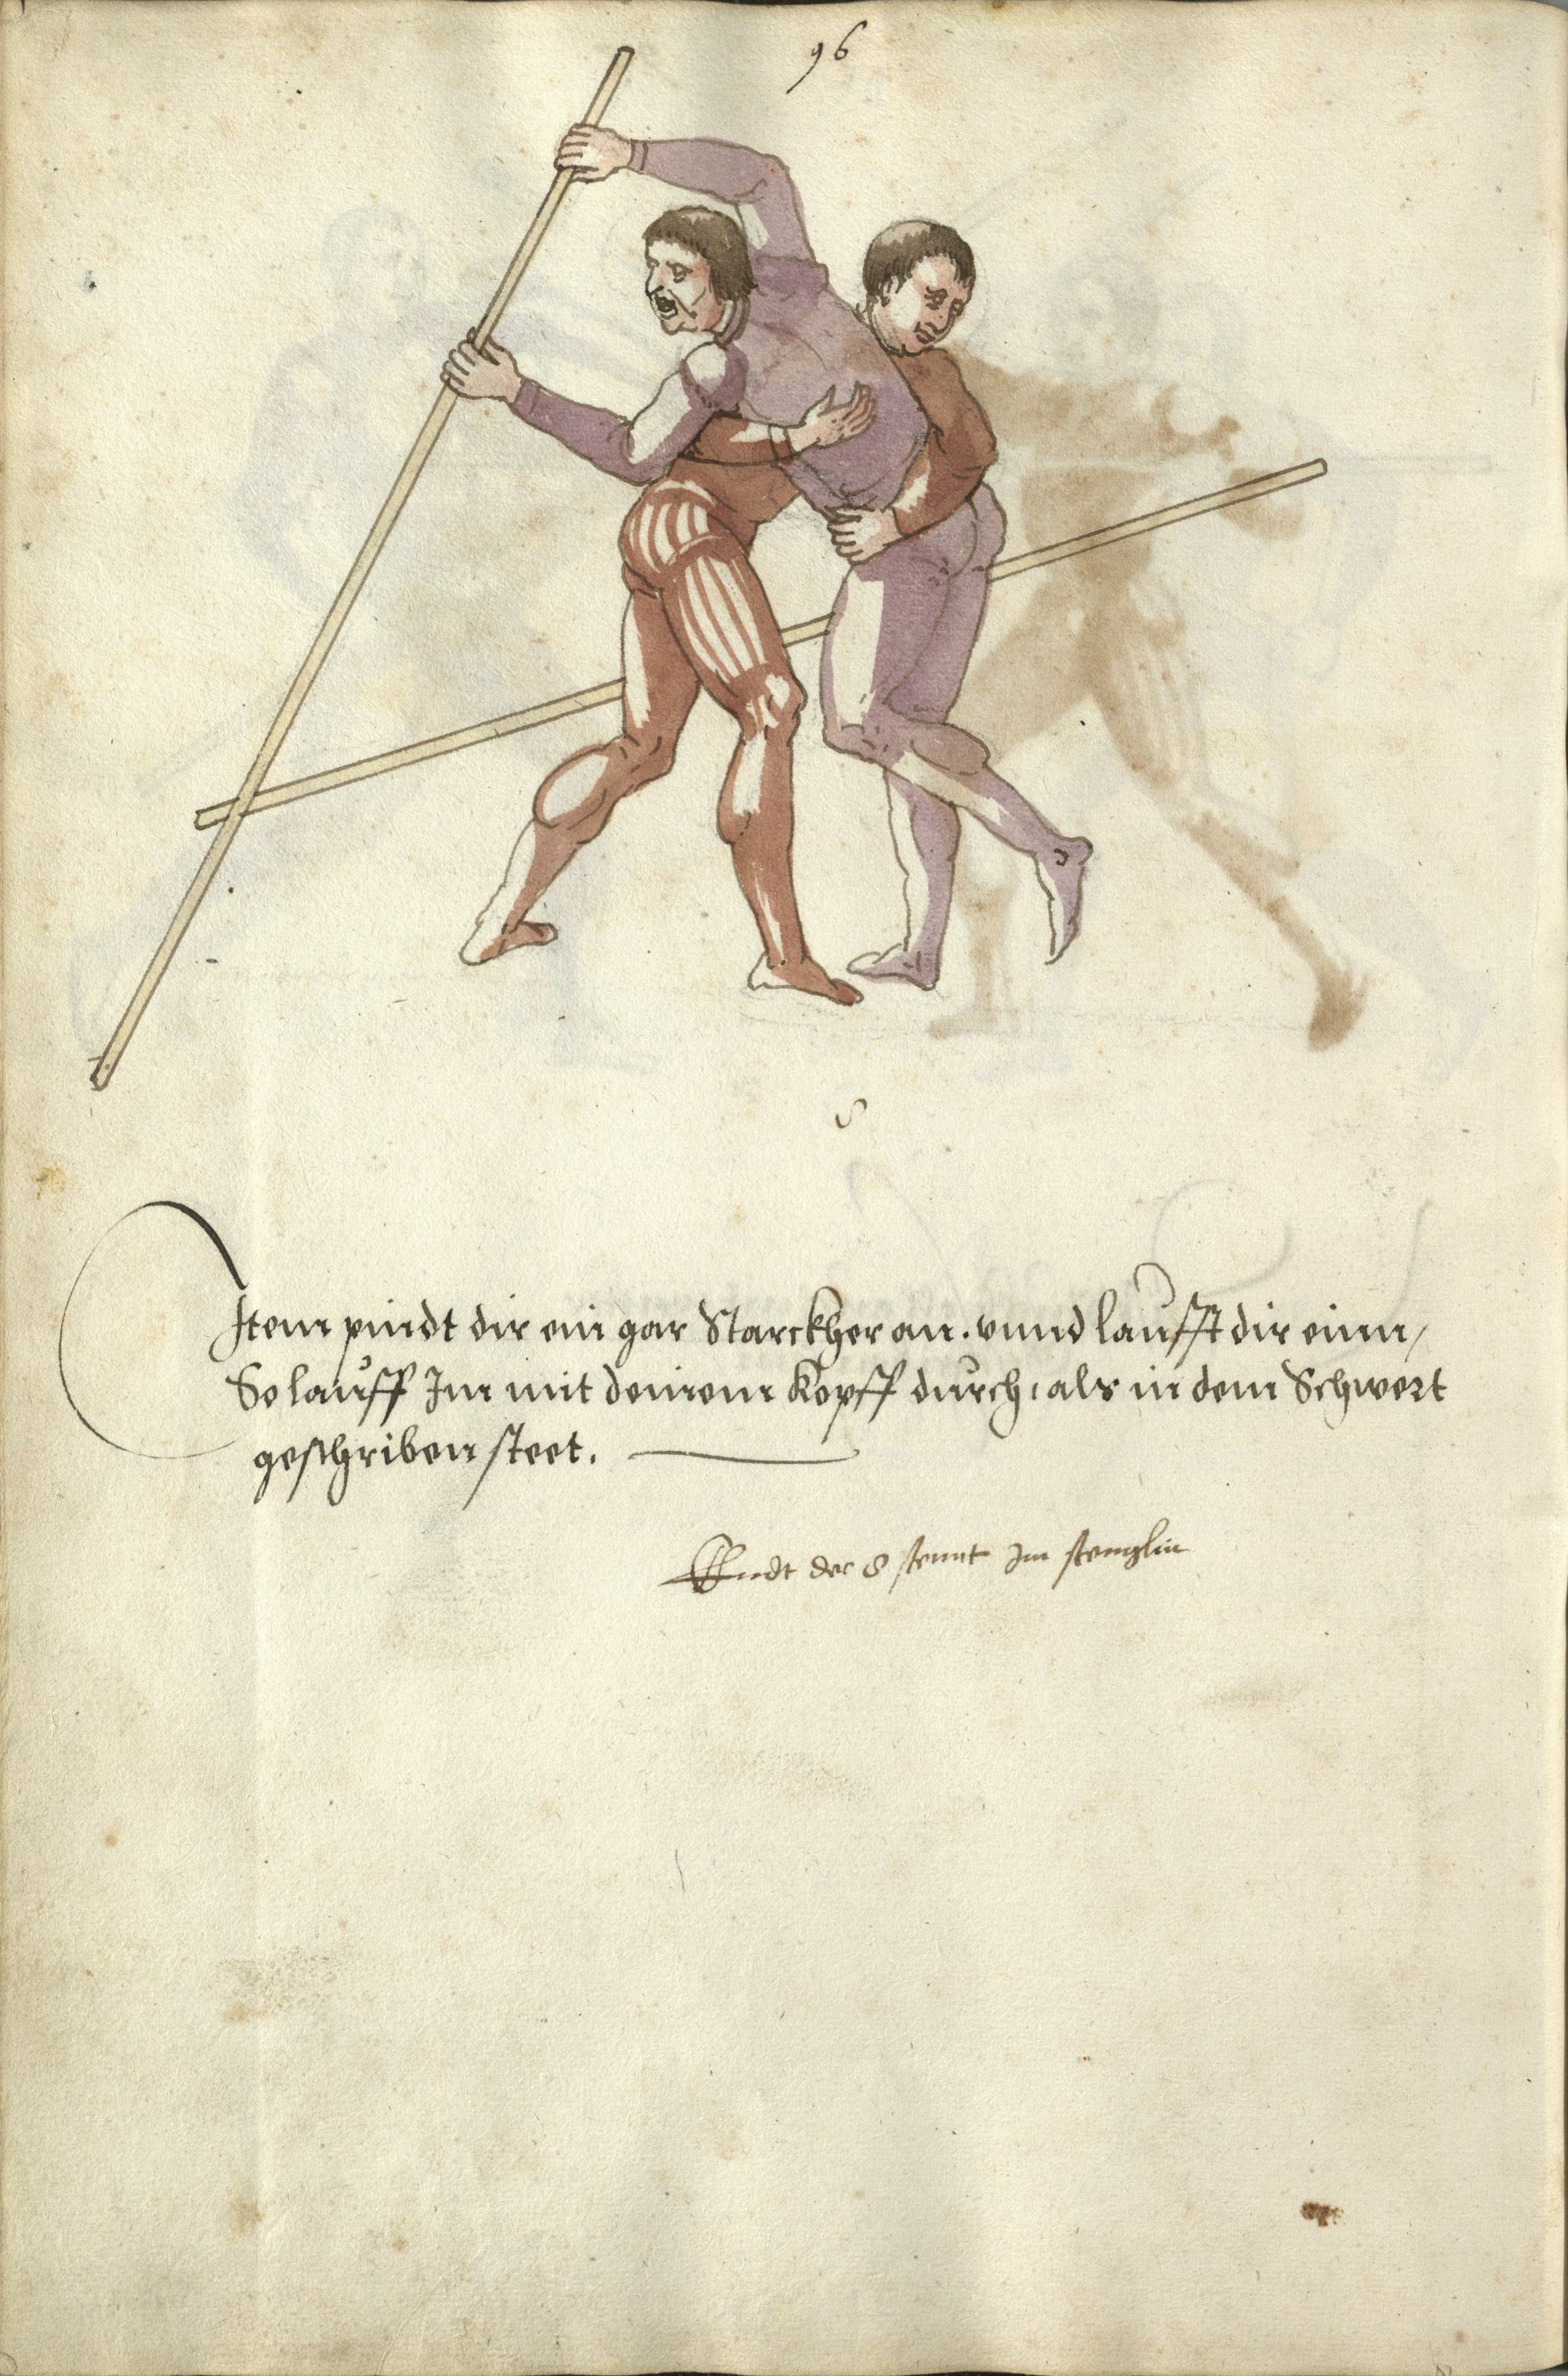 96
8
Item pindt dir ein gar Starckher an. vnnd laufft dir einn /
So lauff Im mit deinem Kopff durch, als in dem Schwert
geschriben steet.
Endt der 8 stennt Im stenglin